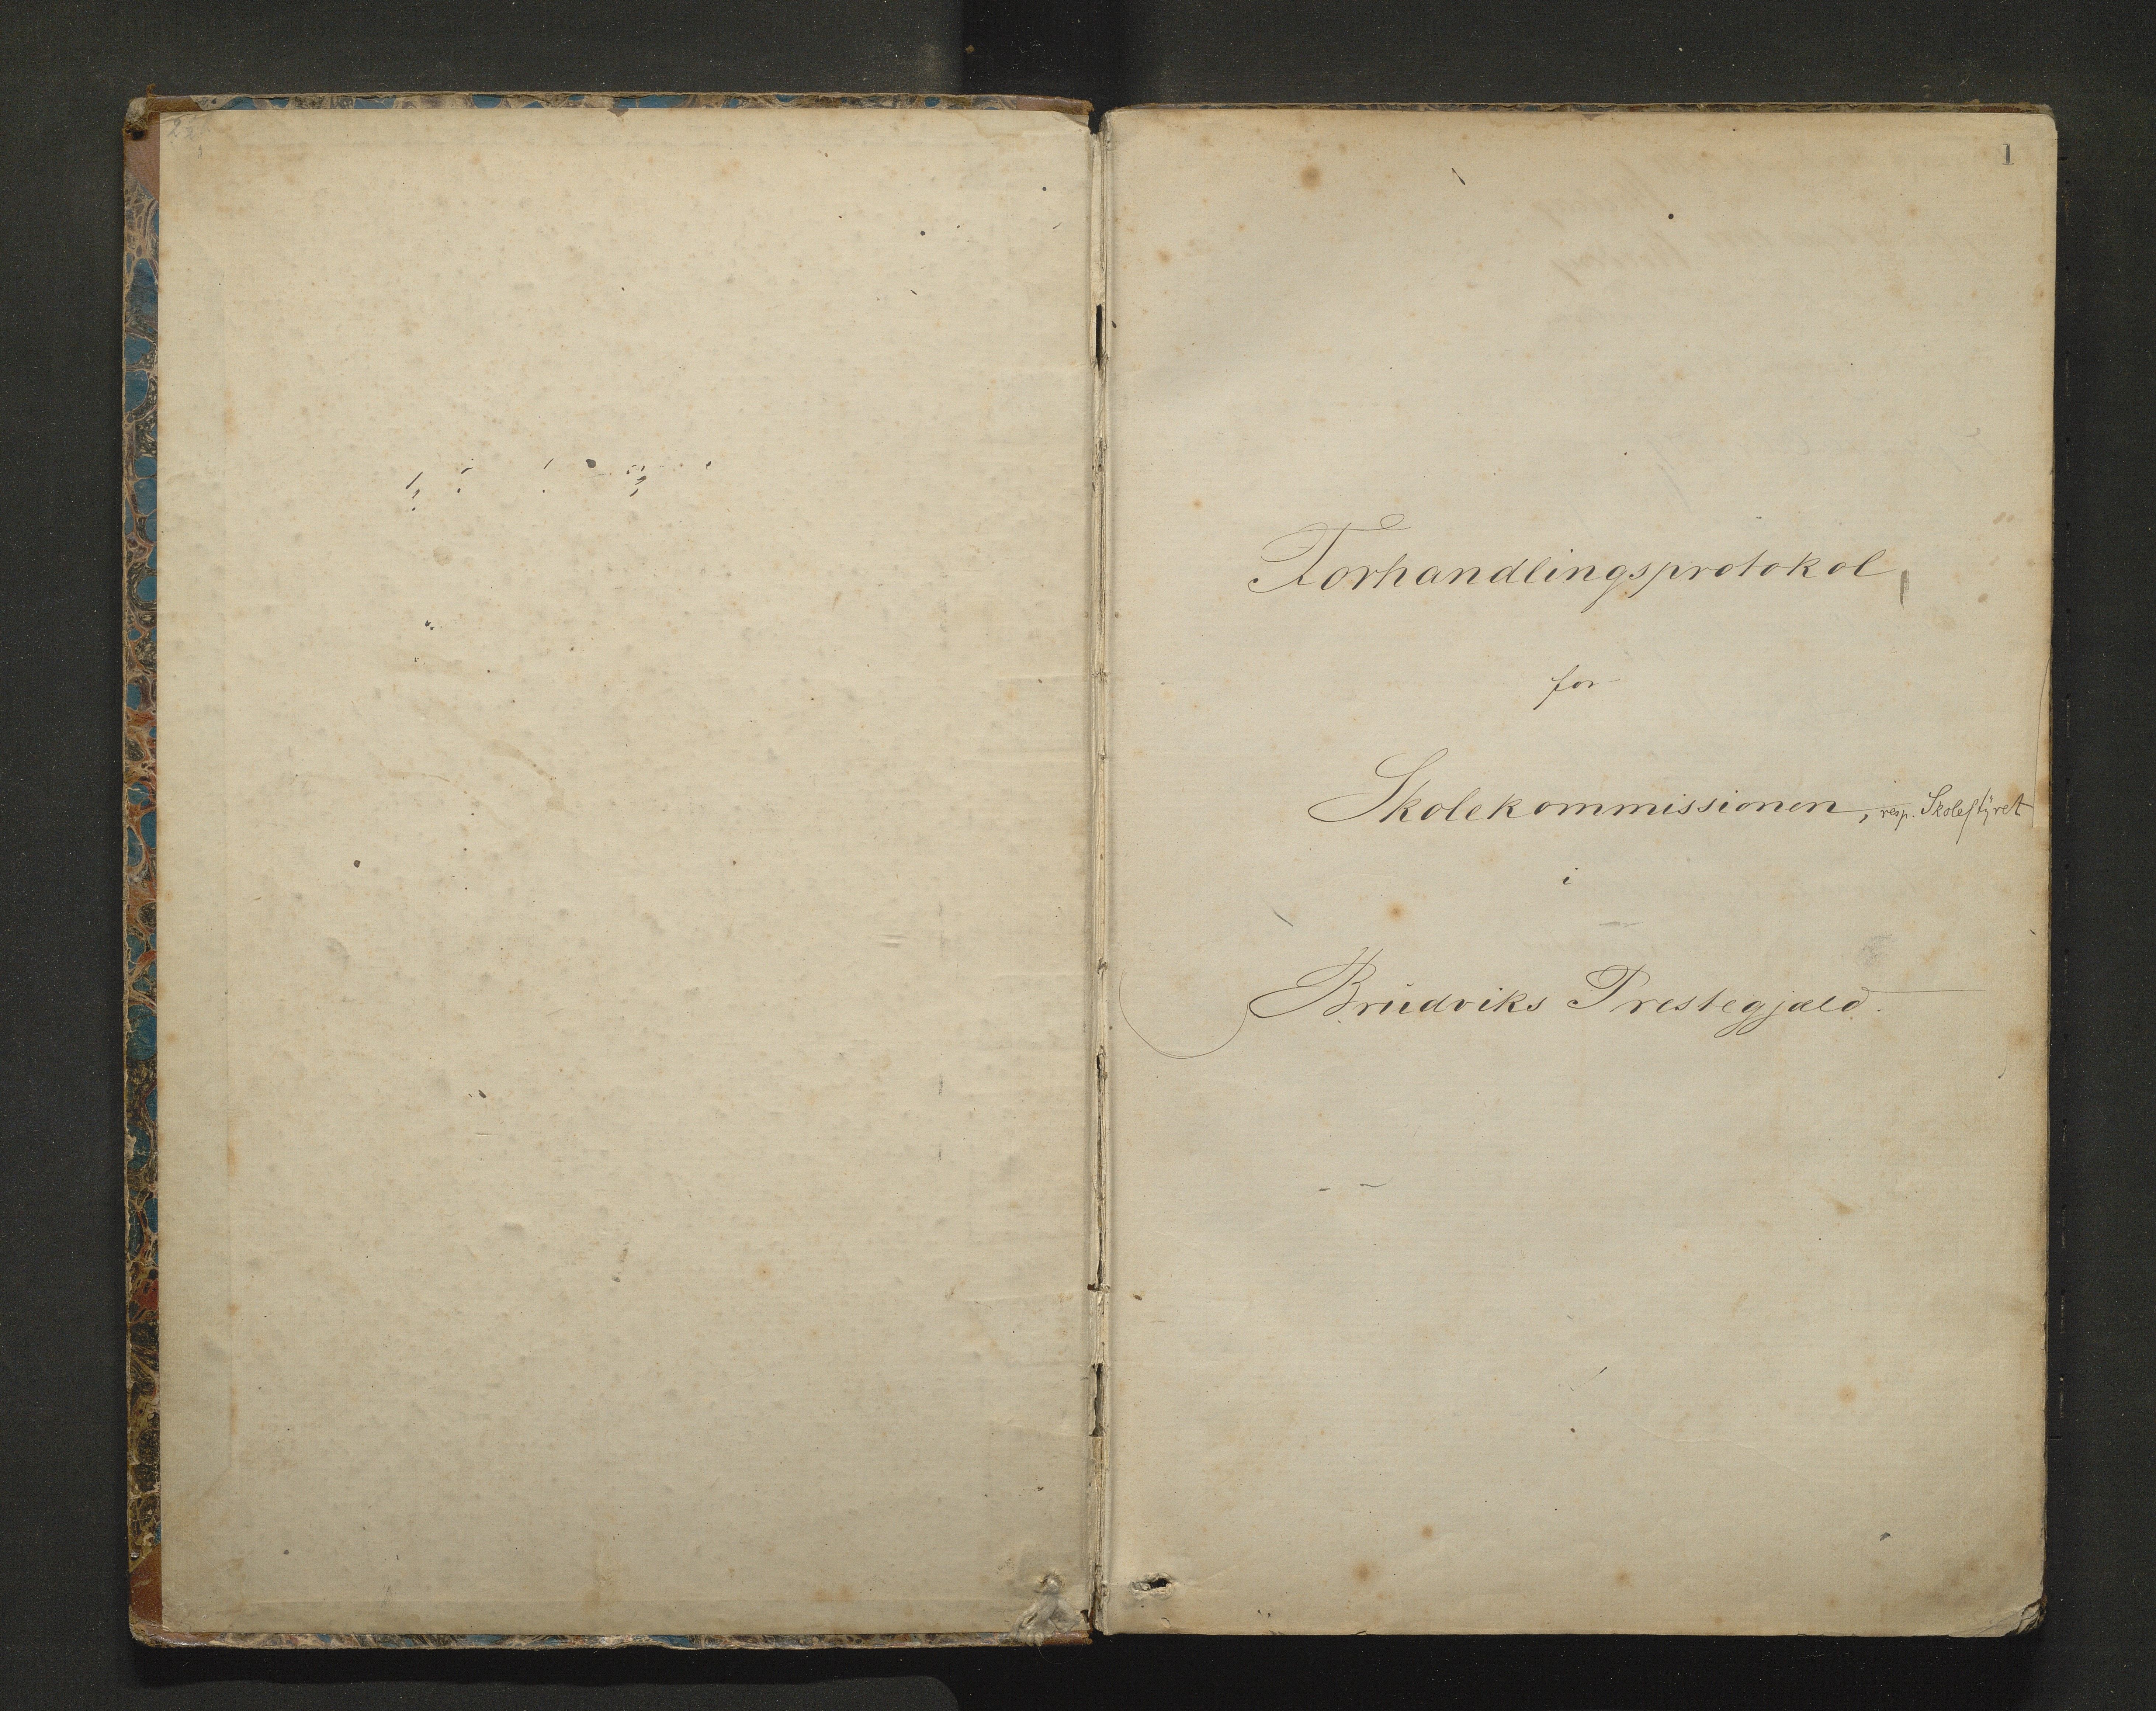 1
Forhandlingsprotokol
for
Skolekommissionen, resp. Skolestyret
i
Brudviks Prestegjæld.